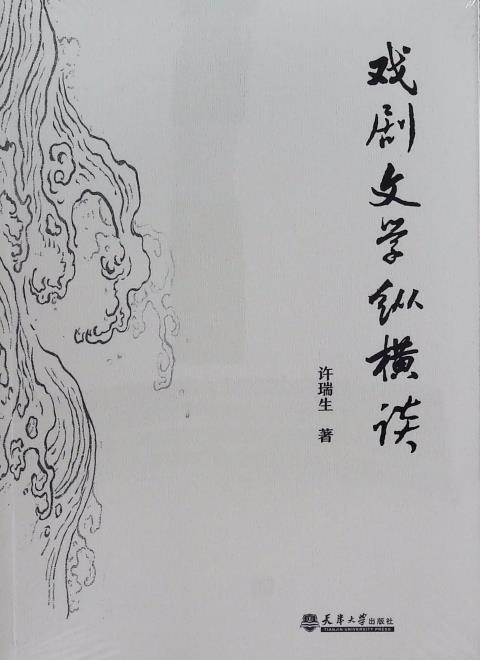 戏剧文学纵横谈
许瑞生 著
天津大学出版社
TIANJIN UNIVERSITY PRESS